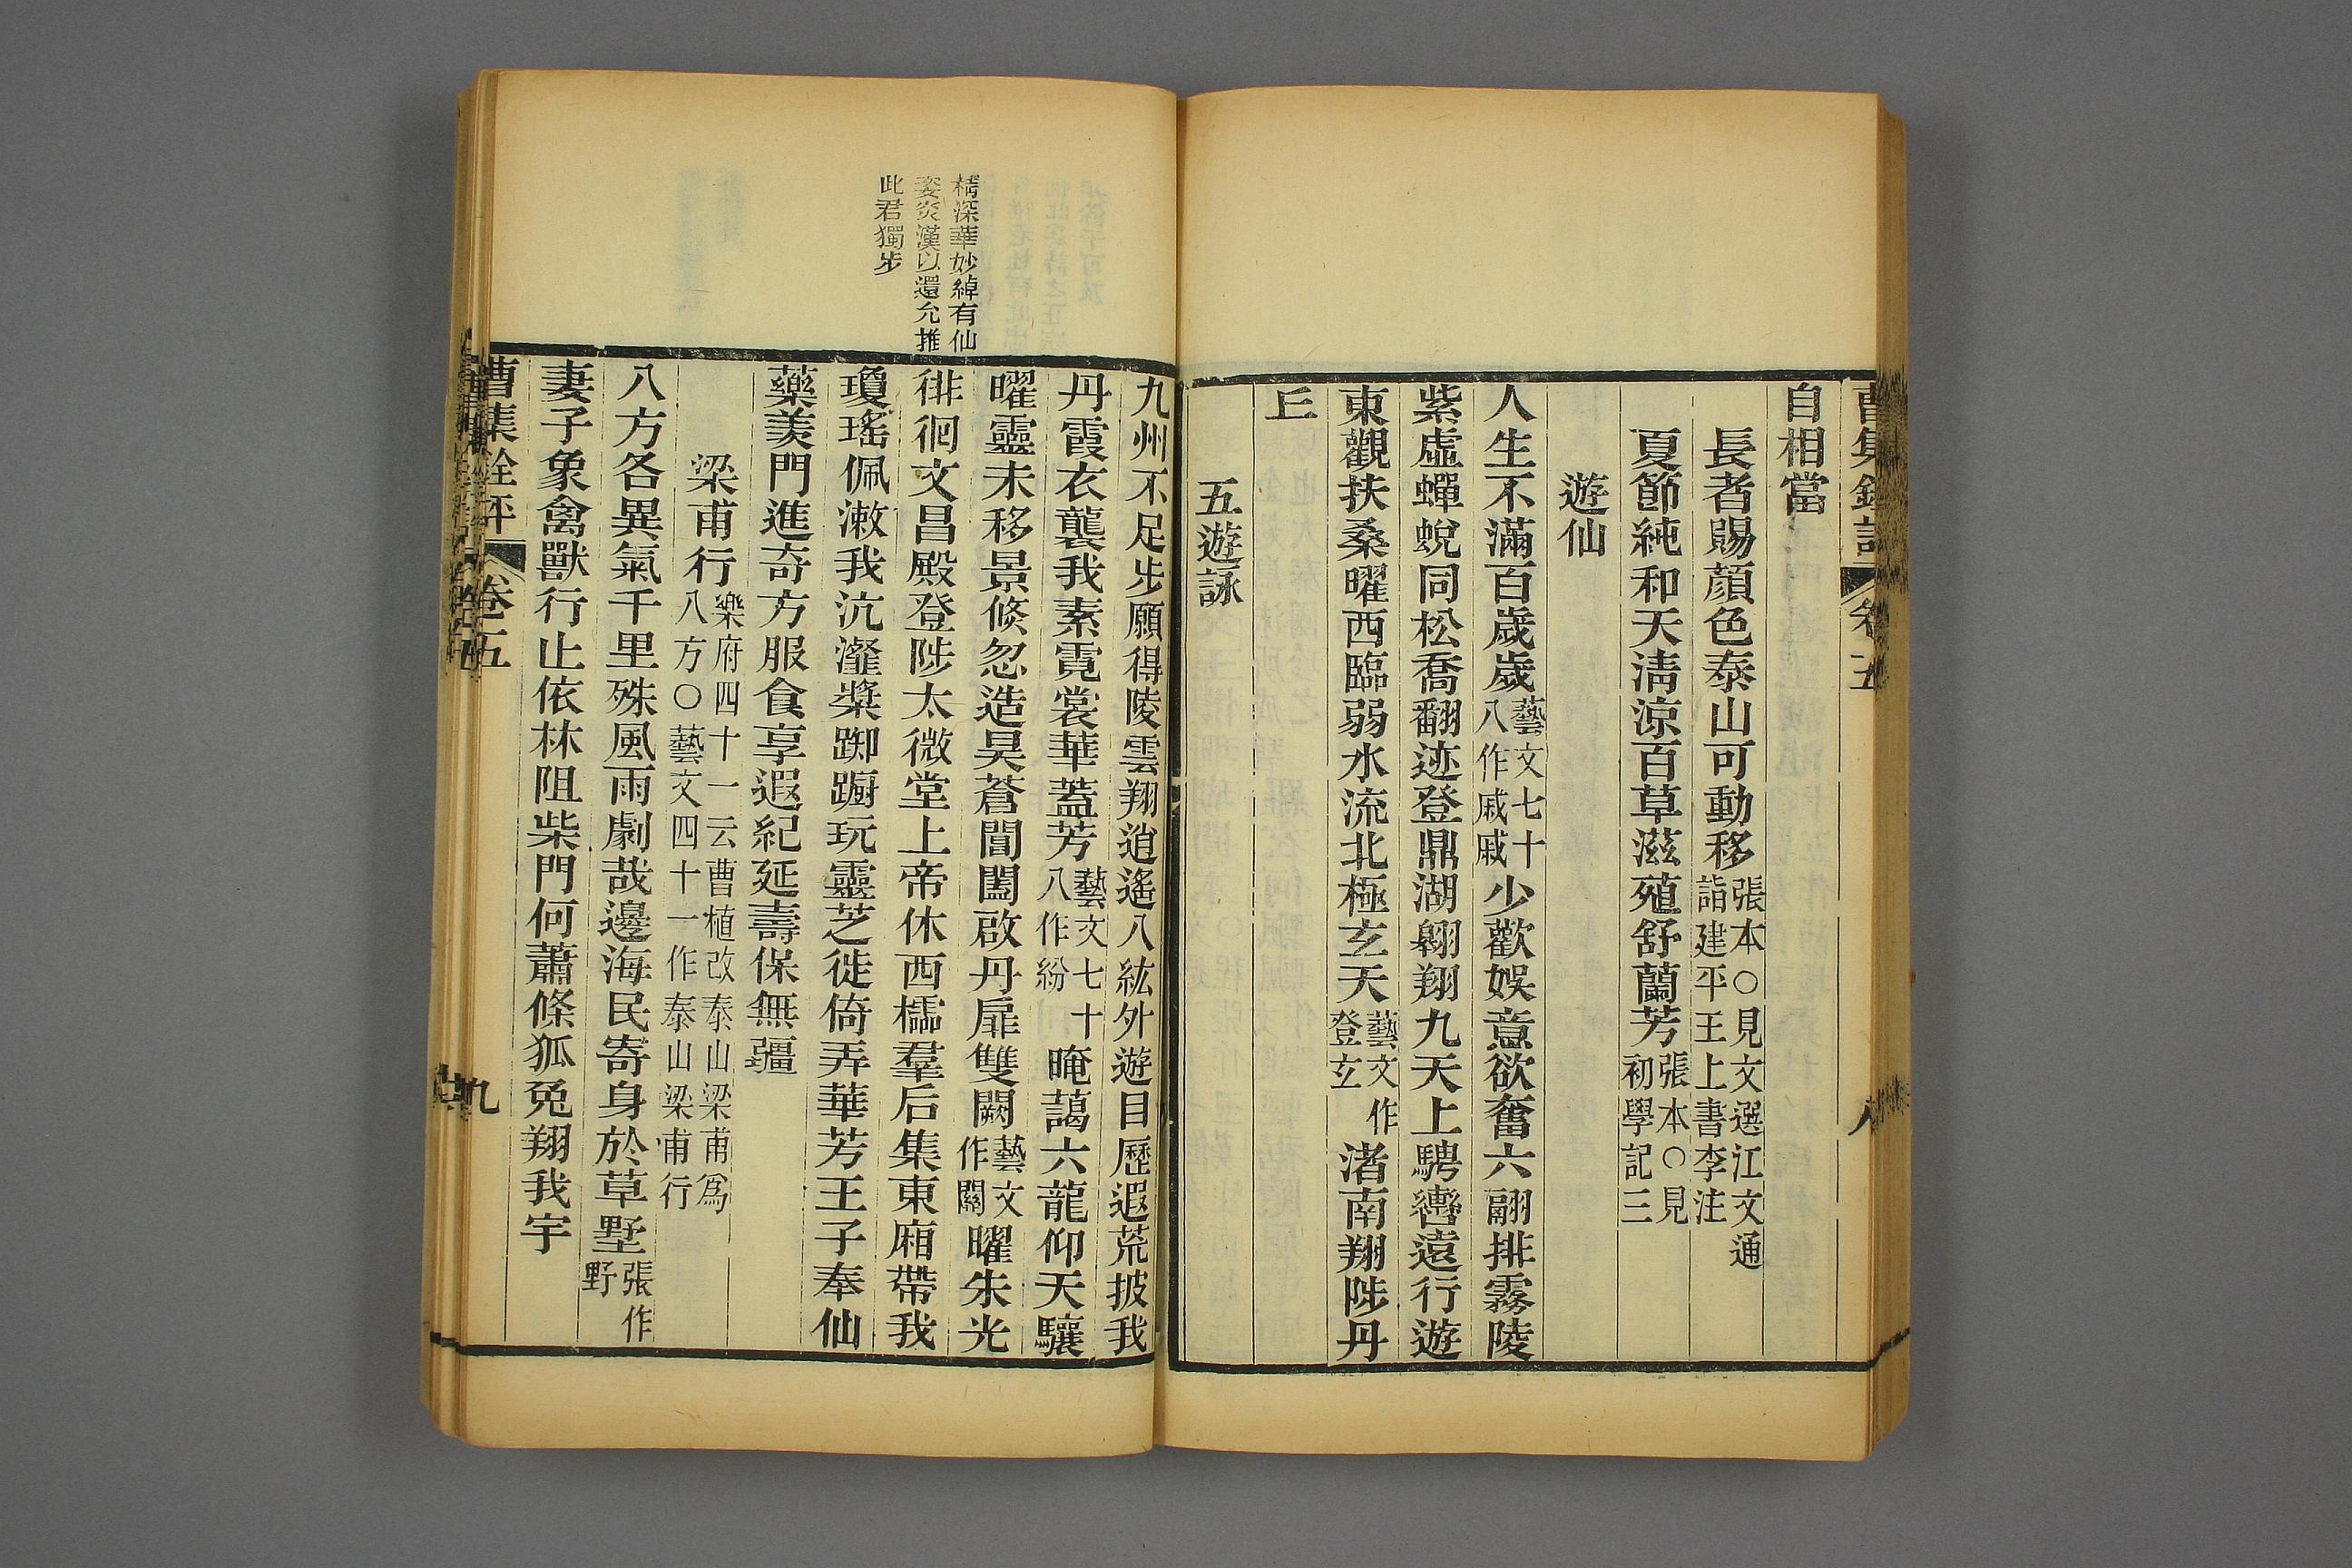 曹集銓評 卷五 八
自相當
長者賜顏色泰山可動移張本○見文選江文通詣建平王上書李注
夏節純和天清涼百草滋殖舒蘭芳張本○見初學記三
遊仙
人生不滿百歲歲藝文七十八作戚戚少歡娛意欲奮六翮排霧陵
紫虛蟬蛻同松喬翻迹登鼎湖翱翔九天上騁轡遠行遊
東觀扶桑曜西臨弱水流北極玄天藝文作登玄渚南翔陟丹
丘
五遊詠
九州不足步願得陵雲翔逍遙八紘外遊目歷遐荒披我
丹霞衣襲我素霓裳華蓋芳藝文七十八作紛晻藹六龍仰天驤
曜靈未移景倐忽造昊蒼閶闔啟丹扉雙闕藝文作關曜朱光
徘徊文昌殿登陟太微堂上帝休西櫺羣后集東廂帶我
瓊瑤佩漱我沆瀣漿踟躕玩靈芝徙倚弄華芳王子奉仙
藥羨門進奇方服食享遐紀延壽保無疆
梁甫行樂府四十一云曹植改泰山梁甫爲八方○藝文四十一作泰山梁甫行
八方各異氣千里殊風雨劇哉邊海民寄身於草墅張作野
妻子象禽獸行止依林阻柴門何蕭條狐兔翔我宇
曹集銓評 卷五 九
精深華妙綽有仙
姿炎漢以還允推
此君獨步